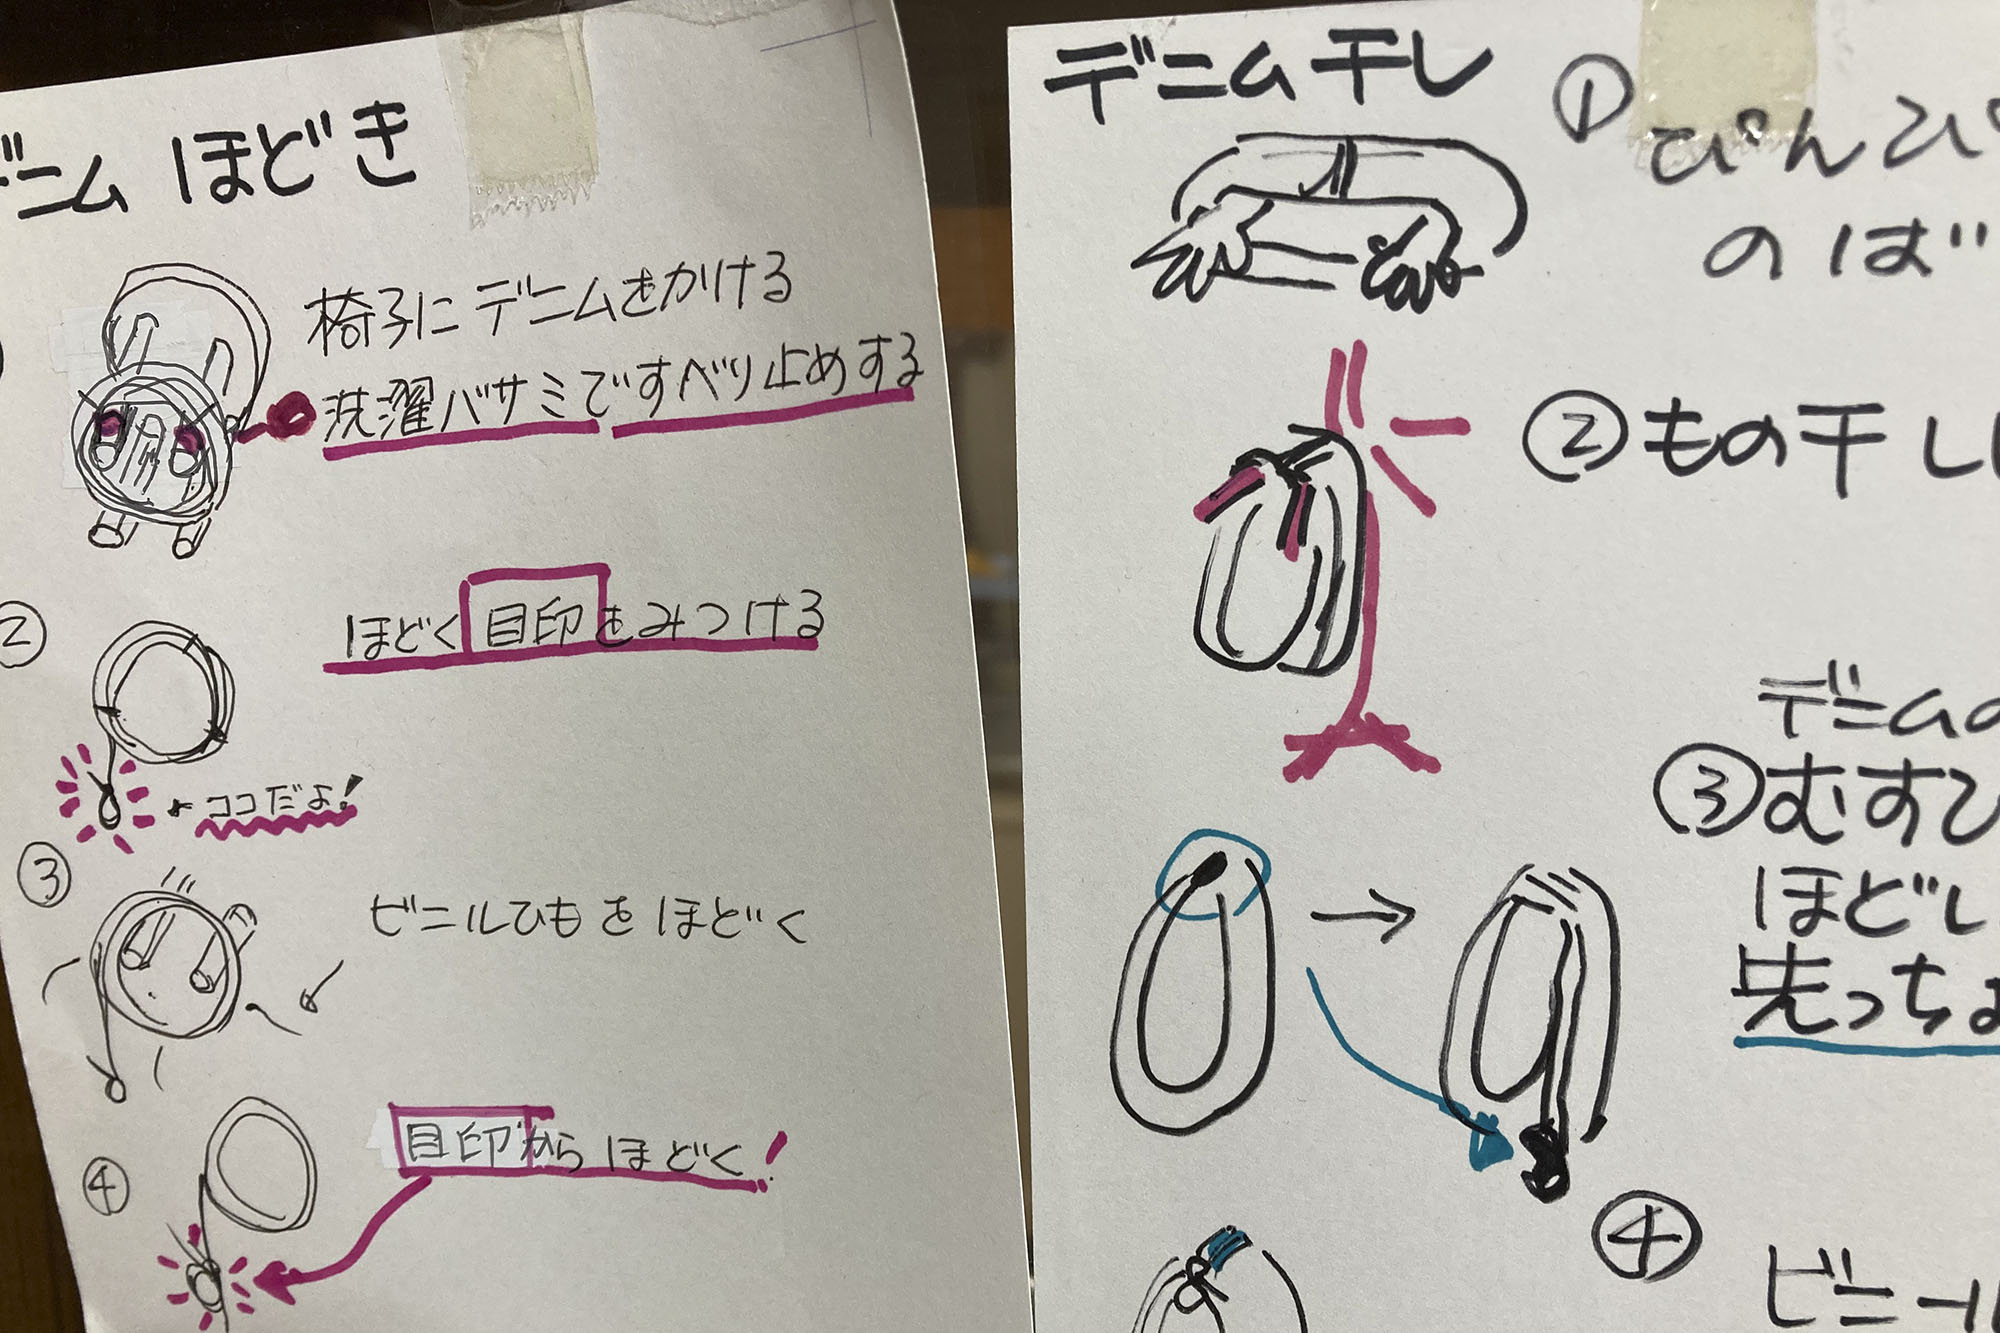 デニム ほどき
椅子に デニムをかける
洗濯バサミですべり止めする
②
ほどく目印をみつける
ココだよ!
③
ビニルひもをほどく
④
目印からほどく!
デニム干し
①
ぴんぴ
のば
②もの干し
デニムの
③むすび
ほどい
先っちょ
④
ビニール